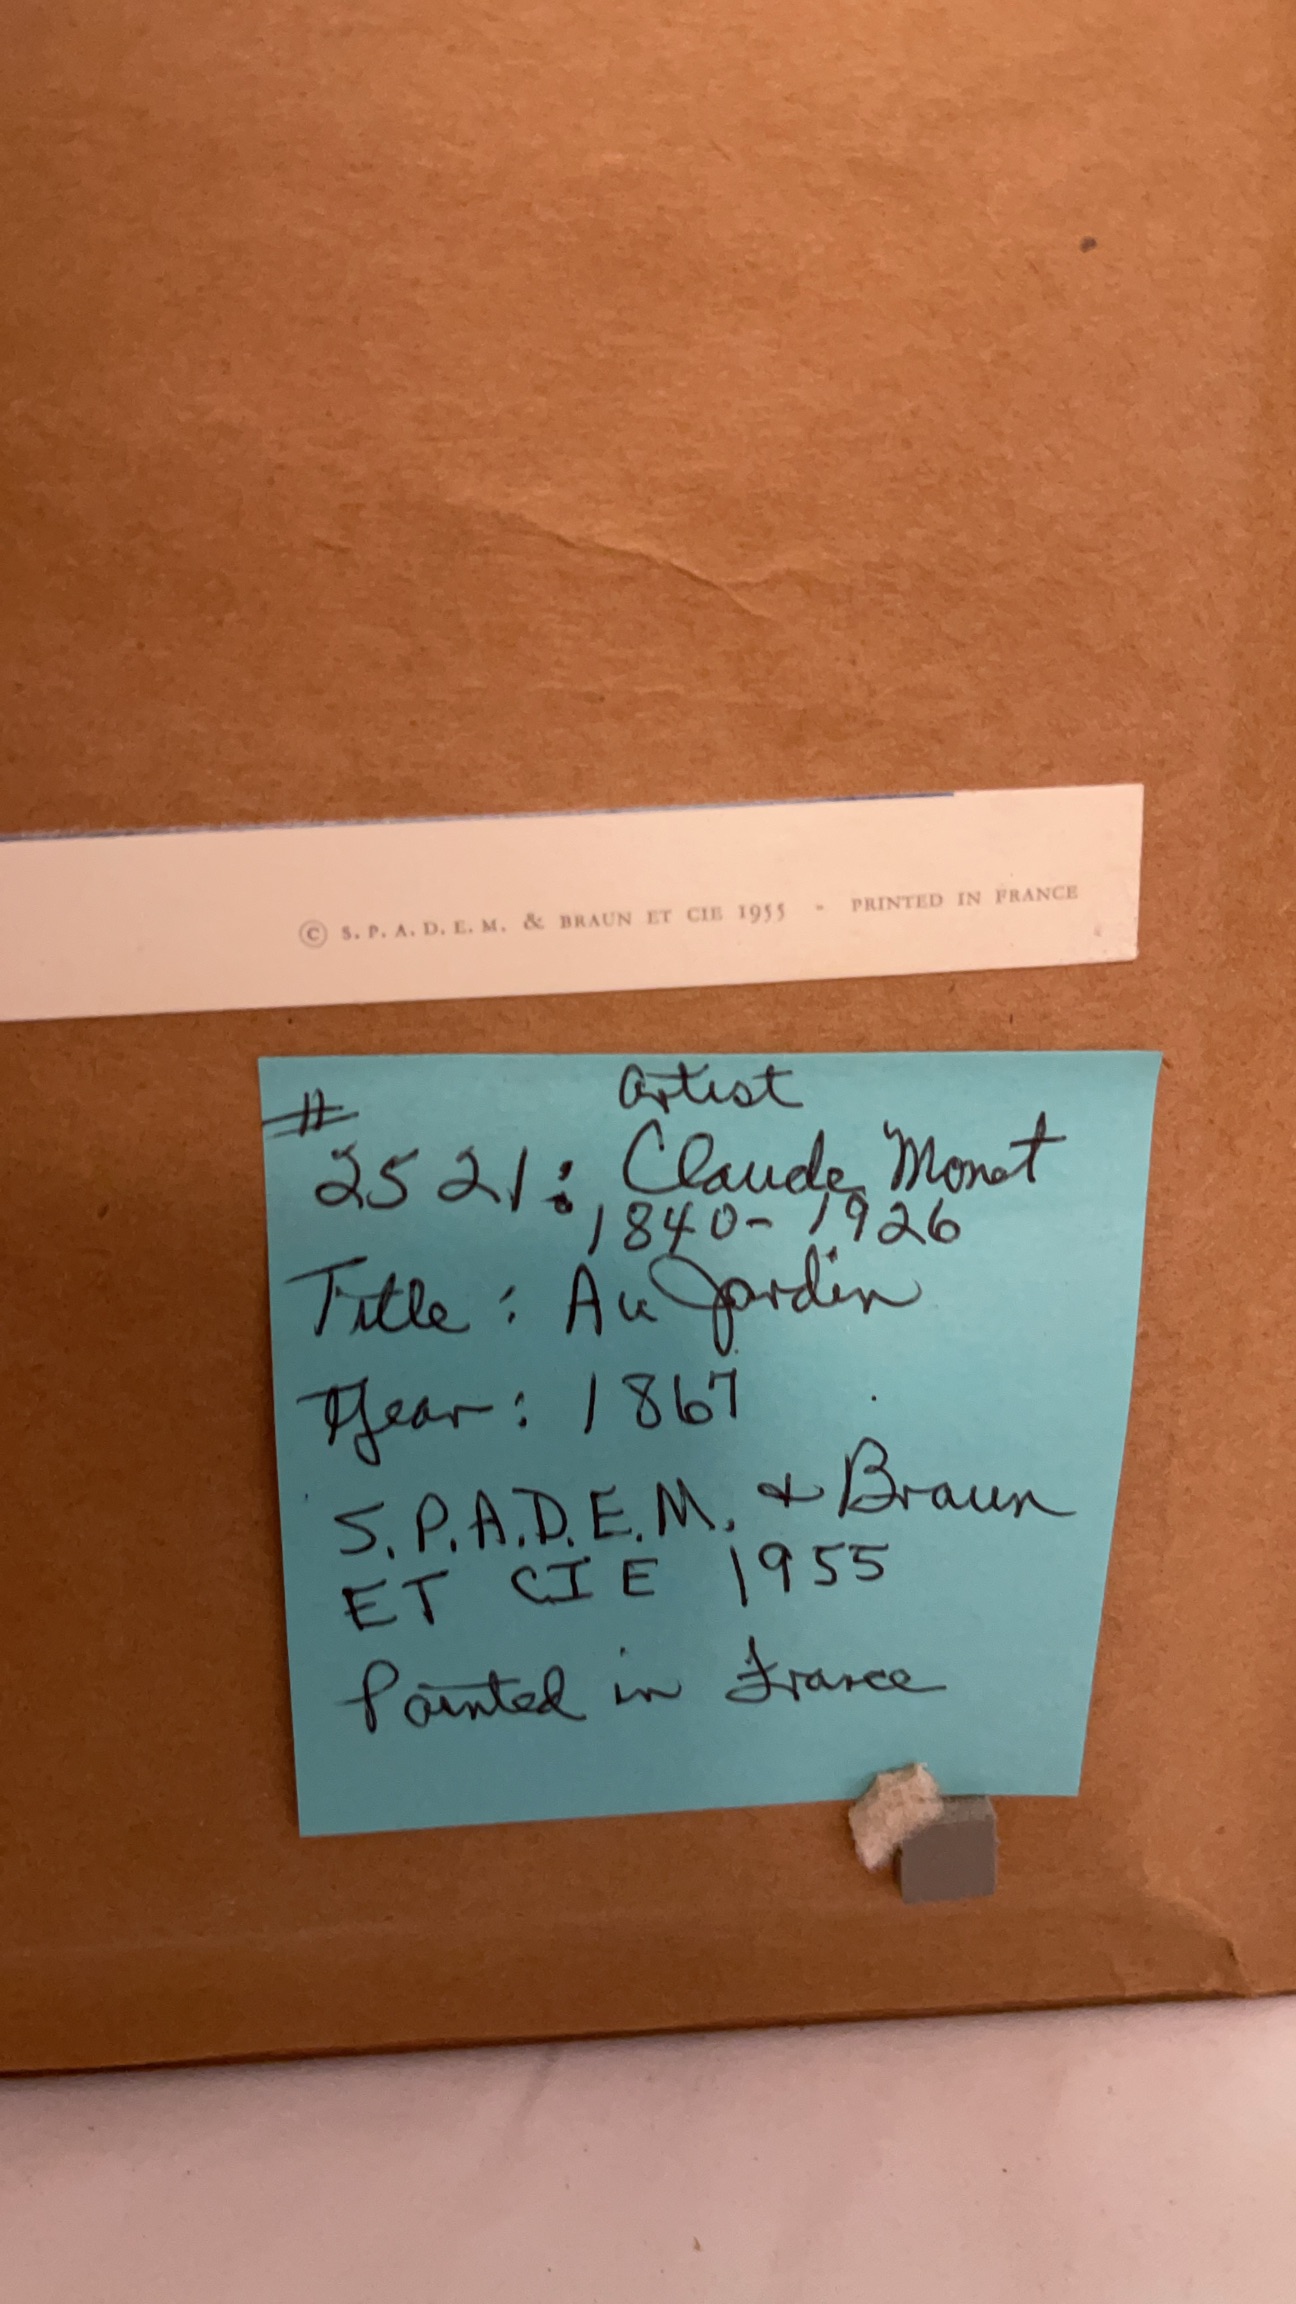 © S. P. A. D. E. M. & BRAUN ET CIE 1955 - PRINTED IN FRANCE
# Artist
2521: Claude Monet
1840-1926
Title: Au Jardin
Year: 1867
S.P.A.D.E.M. & Braun
ET CIE 1955
Painted in France